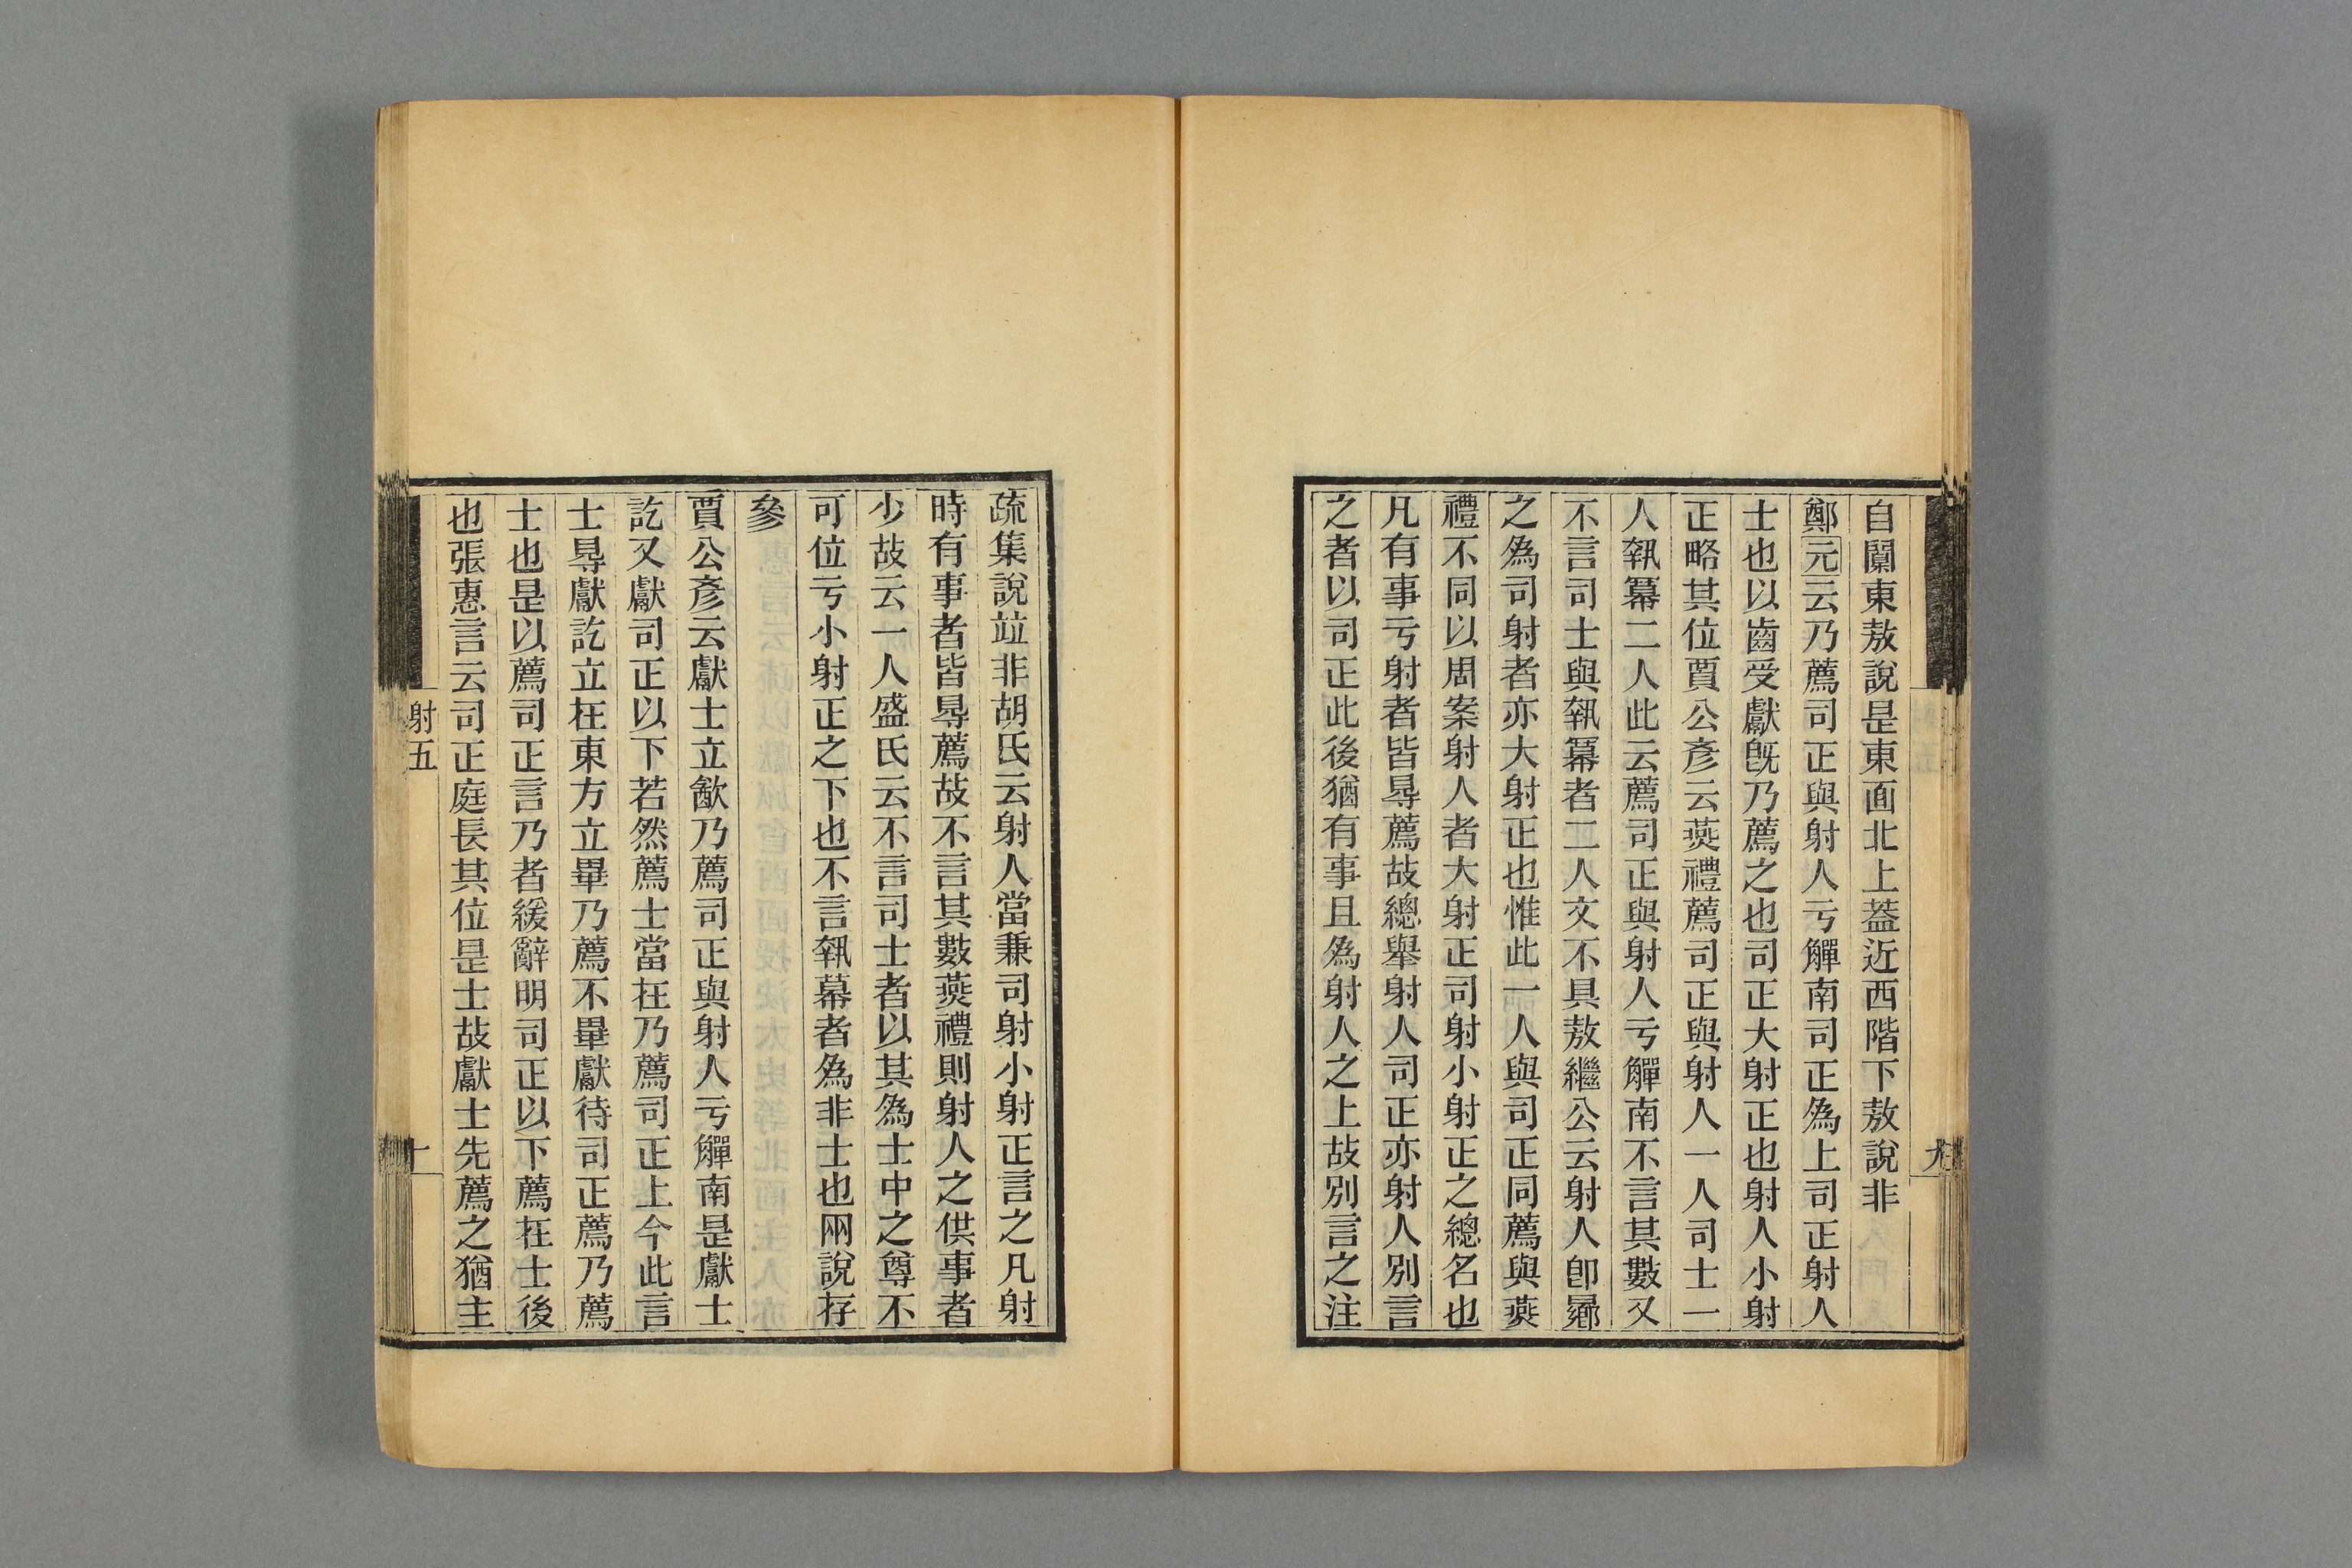 自闑東敖說是東面北上蓋近西階下敖說非
鄭元云乃薦司正與射人亏觶南司正為上司正射人
士也以齒受獻旣乃薦之也司正大射正也射人小射
正略其位賈公彥云燕禮薦司正與射人一人司士一
人𡙕冪二人此云薦司正與射人亏觶南不言其數又
不言司士與𡙕冪者二人文不具敖繼公云射人卽曏
之為司射者亦大射正也惟此一人與司正同薦與燕
禮不同以周案射人者大射正司射小射正之總名也
凡有事亏射者皆㝵薦故總舉射人司正亦射人別言
之者以司正此後猶有事且為射人之上故別言之注
疏集說竝非胡氏云射人當兼司射小射正言之凡射
時有事者皆㝵薦故不言其數燕禮則射人之供事者
少故云一人盛氏云不言司士者以其為士中之尊不
可位亏小射正之下也不言𡙕幕者為非士也兩說存
參
賈公彥云獻士立㱃乃薦司正與射人亏觶南是獻士
訖又獻司正以下若然薦士當在乃薦司正上今此言
士㝵獻訖立在東方立畢乃薦不畢獻待司正薦乃薦
士也是以薦司正言乃者緩辭明司正以下薦在士後
也張惠言云司正庭長其位是士故獻士先薦之猶主
射五